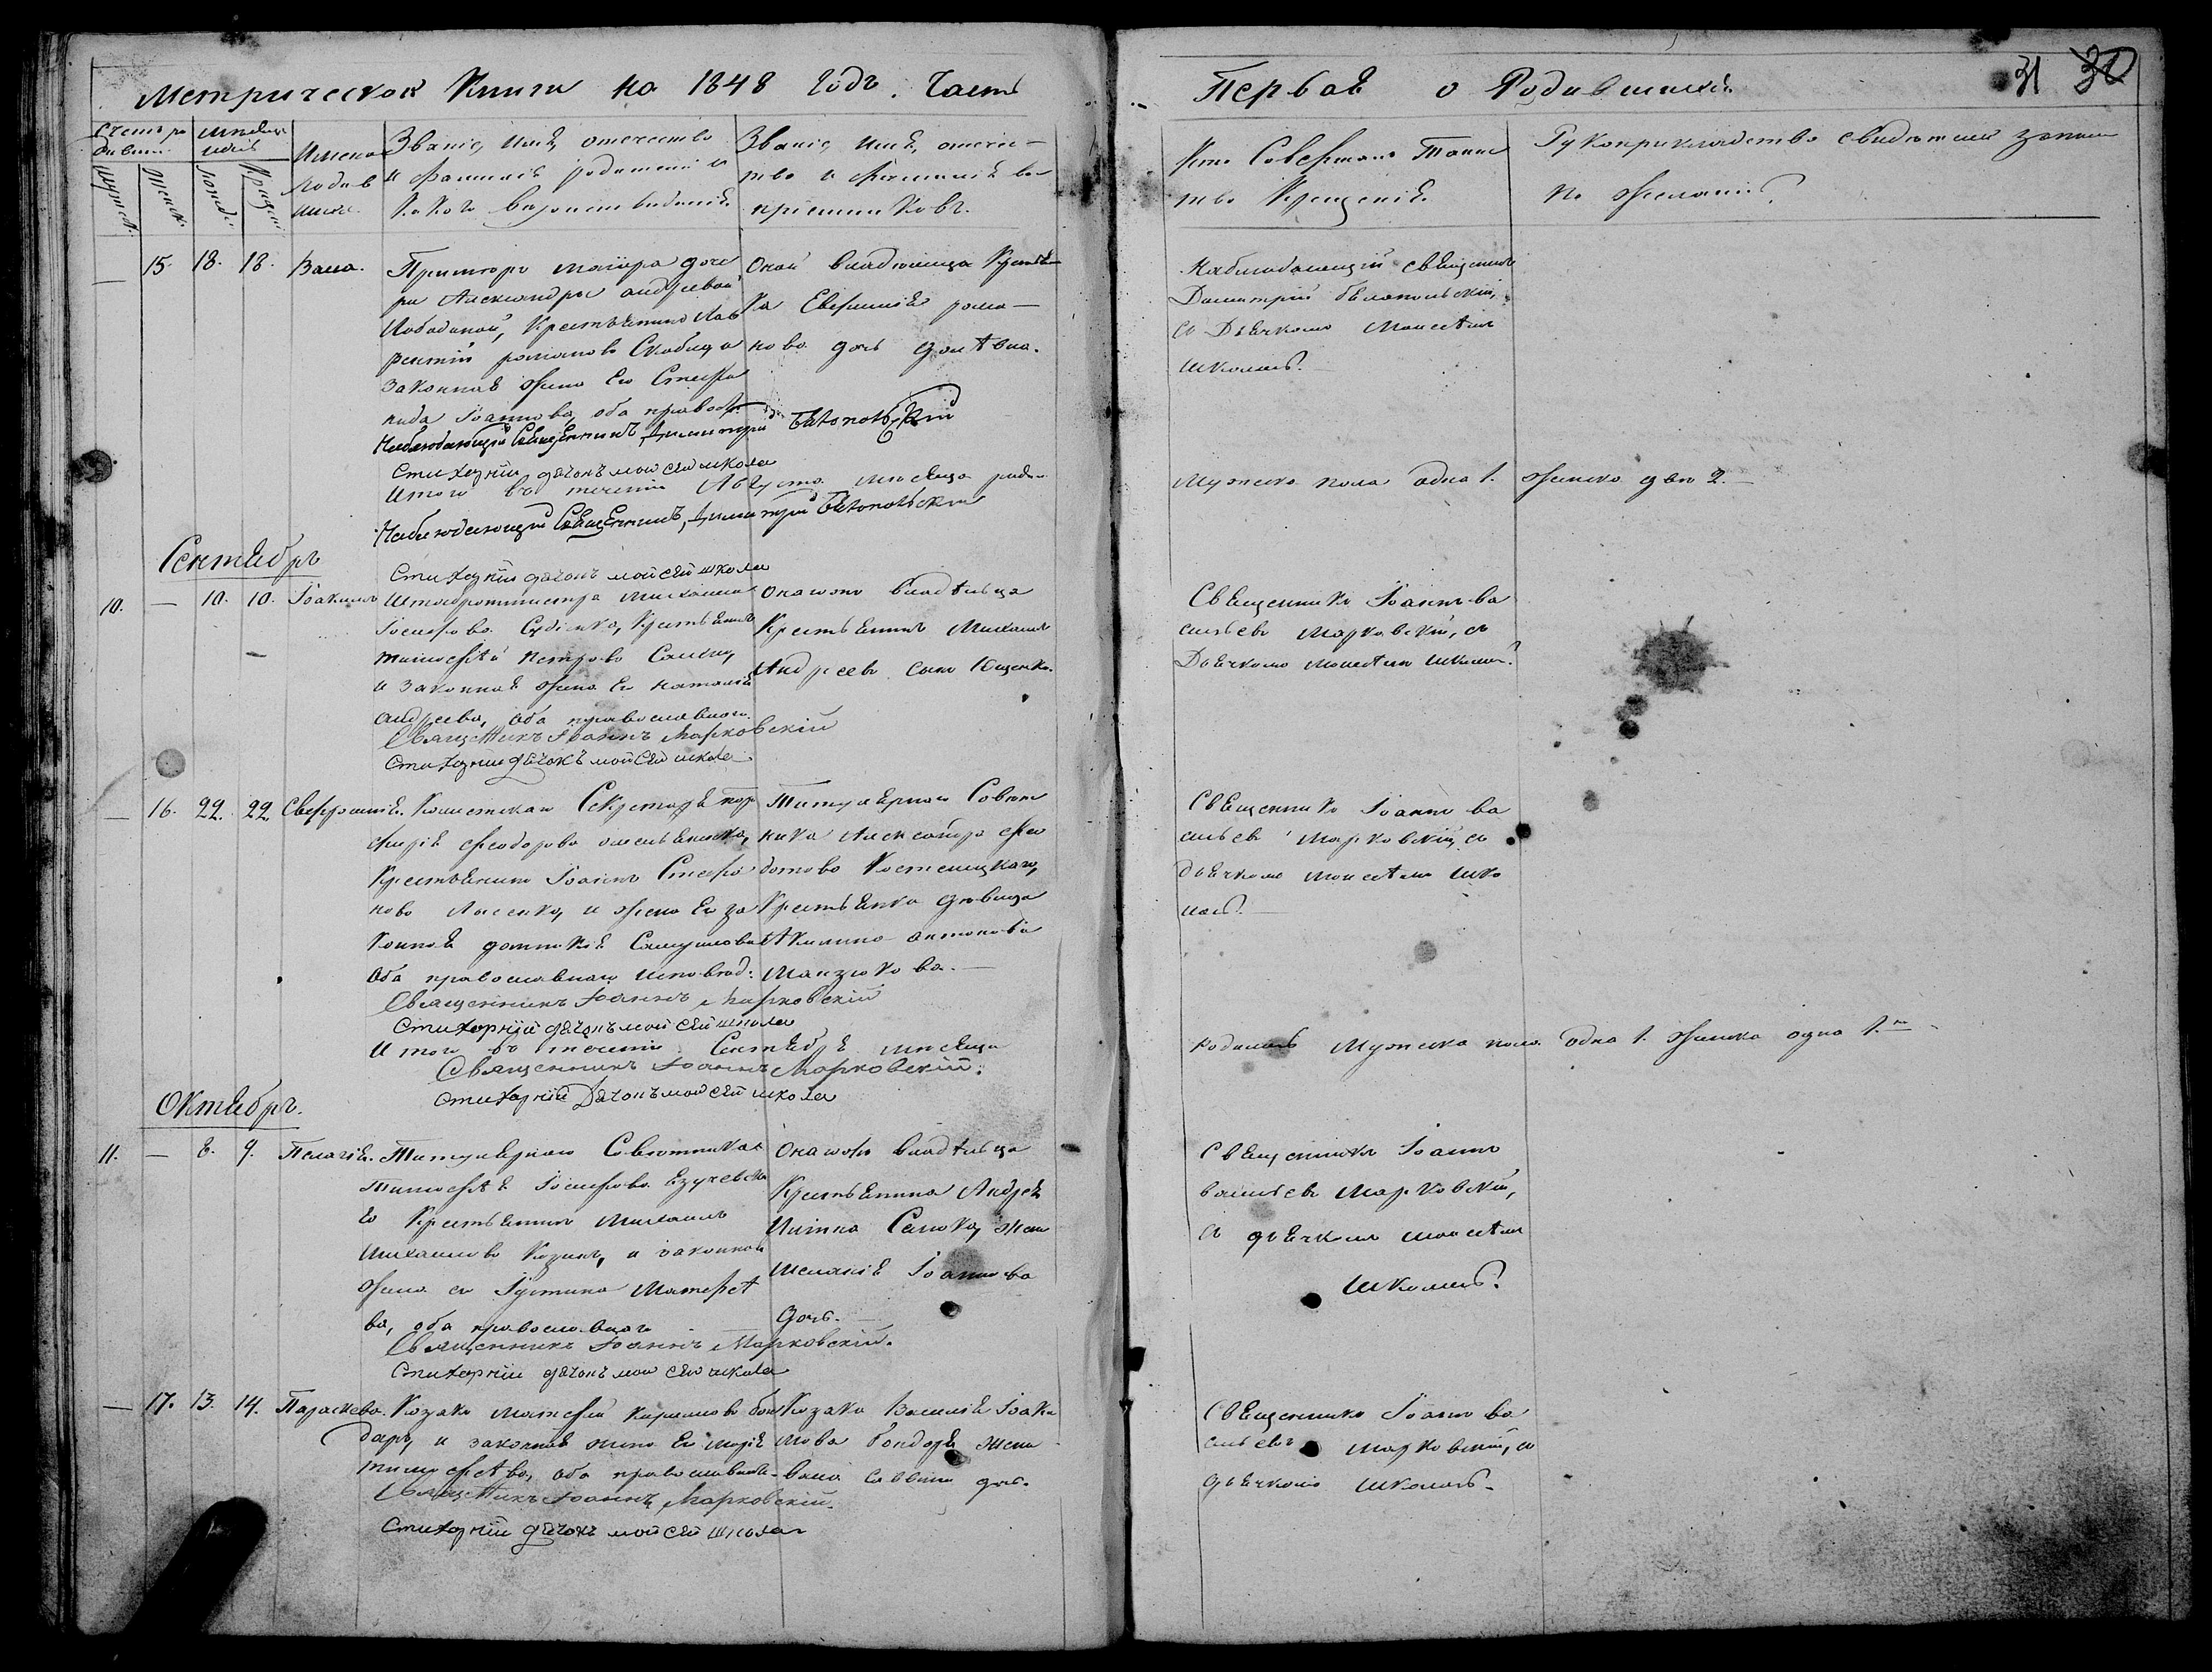 Метрической Книги на 1848 годъ. Часть
Первая о Родившихся
31 30
Имена
родив
шихся
Званіе, имя, отечество
и фамилія родителей и
какого вероисповеданія
Званіе, имя, отечес-
тво и фамилія во-
спріемниковъ.
Кто Совершалъ Таинс
тво Крещенія
Рукоприкладство свидетелей записи
по желанію
15. 18. 18. Васса.
Примюръ маіора доче
ри Александры андреевой
Лободиной, Крестьянинъ Лав
рентій романовъ Скобица
законная жена Его Стефа
нида Іоаннова, оба правосл.
Оной владелицы Крестьян
ка Евфимія рома-
нова дочь
Наблюдающій священникъ
Димитрій Белопольскій,
съ Дьячкомъ Моисеемъ
Школою
Наблюдающій Священникъ, Димитрій Белопольскій
Стихарній дячокъ мойсей школа
Итого въ теченіи Августа месяца роди-
Мужеска пола одна 1. женска две 2.
Наблюдающій Священникъ, Димитрій Белопольскій
Сентябрь
Стихарній дячокъ мойсей школа
10. — 10. 10. Іоакимъ
Штабротмистра Михаила
Іосифова Судіенка, Крестьянинъ
тимофей Петровъ
и законная жена Его наталія
андреева, оба православнаго
Онаго жъ владельца
Крестьянинъ Михаилъ
Андреевъ сынъ Ющенко.
Священникъ Іоаннъ Ва
сильевъ Марковскій, съ
Дьячкомъ моисеемъ школою
Священникъ Іоаннъ Марковскій
Стихарній дячокъ мойсей школа
— 16. 22. 22. Евфросинія.
Колежскаго Секретаря пор
фирія феодорова омельяненка,
Крестьянинъ Іоаннъ Стефа
новъ Лисенко, и жена Его за
конная домникія Самуилова
Оба православнаго исповед:
Титулярнаго Совет
ника Александра фео
дотова Костенецкаго,
Крестьянка девица
Акилина антонова
Манзюкова. —
Священникъ Іоаннъ Ва
сильевъ Марковскій, съ
дьячкомъ моисеемъ шко
лою. —
Священникъ Іоаннъ Марковскій
Стихарній дячокъ мойсей школа
Итого въ теченіи Сентября месяца
родилось Мужеска пола одна 1. женска одна 1.
Священникъ Іоаннъ Марковскій.
стихарній Дячокъ мойсей школа
Октябрь.
11. — 8. 9. Пелагія.
Титулярнаго Советника
Тимофея Іосифова
Крестьянинъ Михаилъ
михаиловъ Козинъ, и законная
жена его Іустина Матфее
ва, оба православнаго
Онаго жъ владельца
Крестьянина Андрея
жена
мелания Іоаннова
дочь. —
Священникъ Іоаннъ
васильевъ Марковскій,
съ дьячкомъ моисеемъ
школою
Священникъ Іоаннъ Марковскій.
Стихарній дячокъ мойсей школа
— 17. 13. 14. Параскева.
Козакъ матфей кириловъ бон
даръ, и законная жена Его марія
тимофеева, оба православнаго
Козака Василія Іоаки
мова бондаря жена
васса саввина дочь.
Священникъ Іоаннъ Ва
сильевъ Марковскій, съ
дьячкомъ школою.
Священникъ Іоаннъ Марковскій.
Стихарній дячокъ мойсей школа